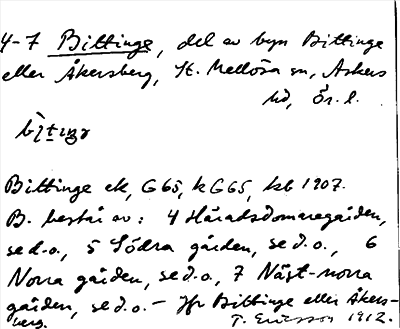 4-7 Bittinge, del av byn Bittinge
eller Åkersberg, St. Mellösa sn, Askers
hd, Ör. l.
Bittinge ek, G65, kG65, kb 1907.
B. består av: 4 Häradsdomaregården,
se d.o., 5 Södra gården, se d.o., 6
Norra gården, se d.o., 7 Näst-norra
gården, se d.o. - Jfr Bittinge eller Åkers-
berg.
T. Ericsson 1912.